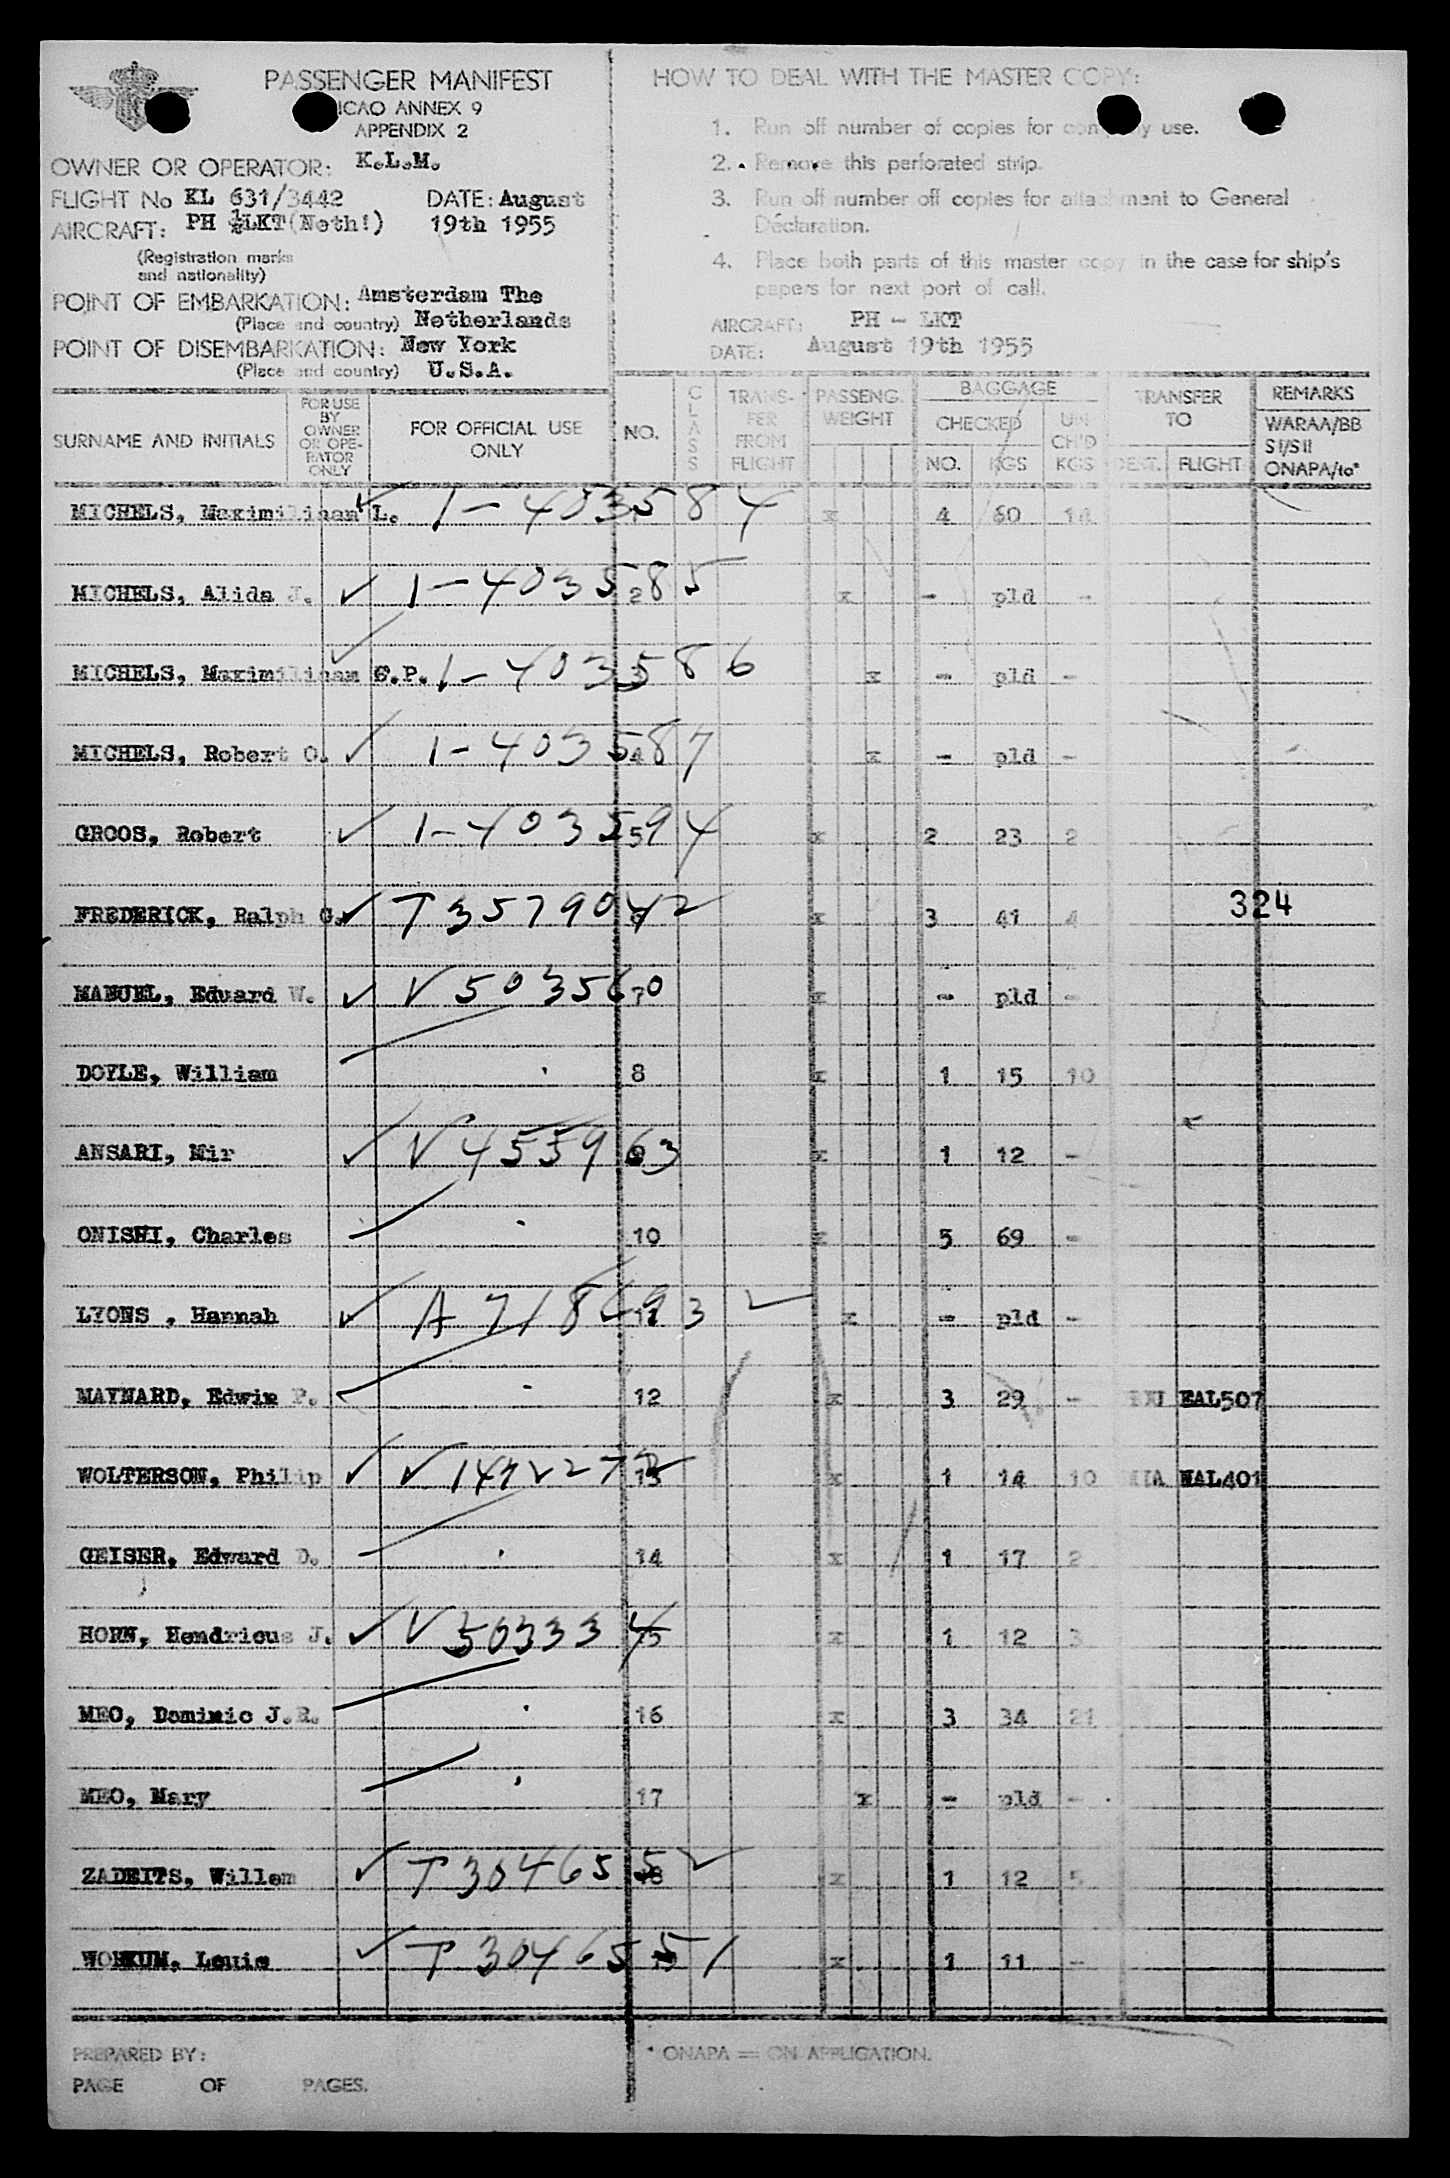 PASSENGER MANIFEST
ICAO ANNEX 9
APPENDIX 2
OWNER OR OPERATOR: K.L.M.
FLIGHT No KL 631/3442 DATE: August
AIRCRAFT: PH LKT(Neth!) 19th 1955
(Registration marks
and nationality)
POINT OF EMBARKATION: Amsterdam The
(Place and country) Netherlands
POINT OF DISEMBARKATION: New York
(Place and country) U.S.A.
HOW TO DEAL WITH THE MASTER COPY:
1. Run off number of copies for company use.
2. Remove this perforated strip.
3. Run off number off copies for attachment to General
Declaration.
4. Place both parts of this master copy in the case for ship's
papers for next port of call.
AIRCRAFT: PH - LKT
DATE: August 19th 1955
SURNAME AND INITIALS
FOR USE
BY
OWNER
OR OPE-
RATOR
ONLY
FOR OFFICIAL USE
ONLY
NO.
CLASS
TRANS-
FER
FROM
FLIGHT
PASSENG.
WEIGHT
BAGGAGE
CHECKED
NO. KGS
UN
CH'D
KGS
TRANSFER
TO
DEST. FLIGHT
REMARKS
WARAA/BB
SI/SII
ONAPA/to*
MICHELS, Maximiliaan L. ✓ 1-403584 x 4 60 14
MICHELS, Alida J. ✓ 1-403585 2 x - pld -
MICHELS, Maximiliaan G.P. ✓ 1-403586 3 x - pld -
MICHELS, Robert O. ✓ 1-403587 4 x - pld -
GROOS, Robert ✓ 1-403594 5 x 2 23 2
FREDERICK, Ralph G. ✓ T3579042 x 3 41 4 324
MANUEL, Eduard W. ✓ V503560 7 x - pld -
DOYLE, William 8 x 1 15 10
ANSARI, Mir ✓ V455963 x 1 12 -
ONISHI, Charles 10 x 5 69 -
LYONS , Hannah ✓ 11 x - pld -
MAYNARD, Edwin P. 12 x 3 29 - EAL507
WOLTERSON, Philip ✓ 13 x 1 14 10 MIA NAL401
GEISER, Edward D. 14 x 1 17 2
HORN, Hendricus J. ✓ V503334 15 x 1 12 3
MEO, Dominic J.R. 16 x 3 34 21
MEO, Mary 17 x - pld -
ZADEITS, Willem ✓ T304655 18 x 1 12 5
WORKUM, Louis ✓ T3046551 x 1 11 -
PREPARED BY:
PAGE OF PAGES.
* ONAPA = ON APPLICATION.